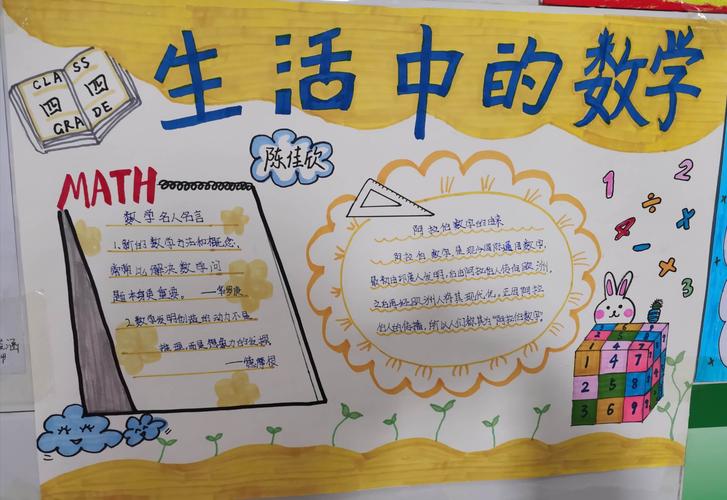 生活中的数学
CLASS
四 四
GRADE
陈佳欣
MATH
数学名人名言
1.新的数学方法和概念,
常常比解决数学问
题本身更重要。——华罗庚
2.数学发明创造的动力不是
推理,而是想象力的发挥
——德摩根
阿拉伯数字的由来
阿拉伯数字是现今国际通用数字。
最初由印度人发明,后由阿拉伯人传向欧洲,
之后再经欧洲人将其现代化。正因阿拉
伯人的传播,所以人们称其为"阿拉伯数字"
1 2
÷
4 - ×
3
8
1 4 7
2 5 8
3 6 9